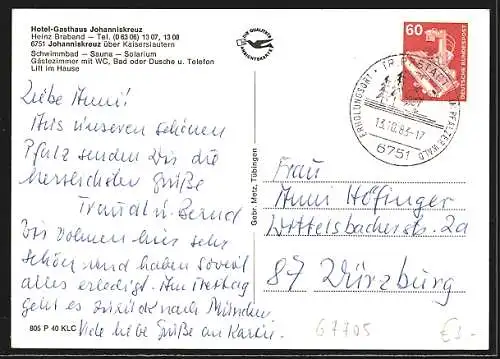 Hotel-Gasthaus Johanniskreuz
Heinz Braband — Tel. (0 63 06) 13 07, 13 08
6751 Johanniskreuz über Kaiserslautern
Schwimmbad — Sauna — Solarium
Gästezimmer mit WC, Bad oder Dusche u. Telefon
Lift im Hause
Liebe Anni!
Aus unserer schönen
Pfalz senden Dir die
herzlichsten Grüße
Traudl u. Bernd
Wir wohnen hier sehr
schön und haben soviel
alles erledigt. Am Freitag
geht es zurück nach München.
Viele liebe Grüße an Karin.
805 P 40 KLC
Gebr. Metz, Tübingen
60
DEUTSCHE BUNDESPOST
ERHOLUNGSORT
PFÄLZER WALD
13.10.83-17
6751
Frau
Anni Höfinger
Wittelsbacherstr. 2a
87 Würzburg
67705